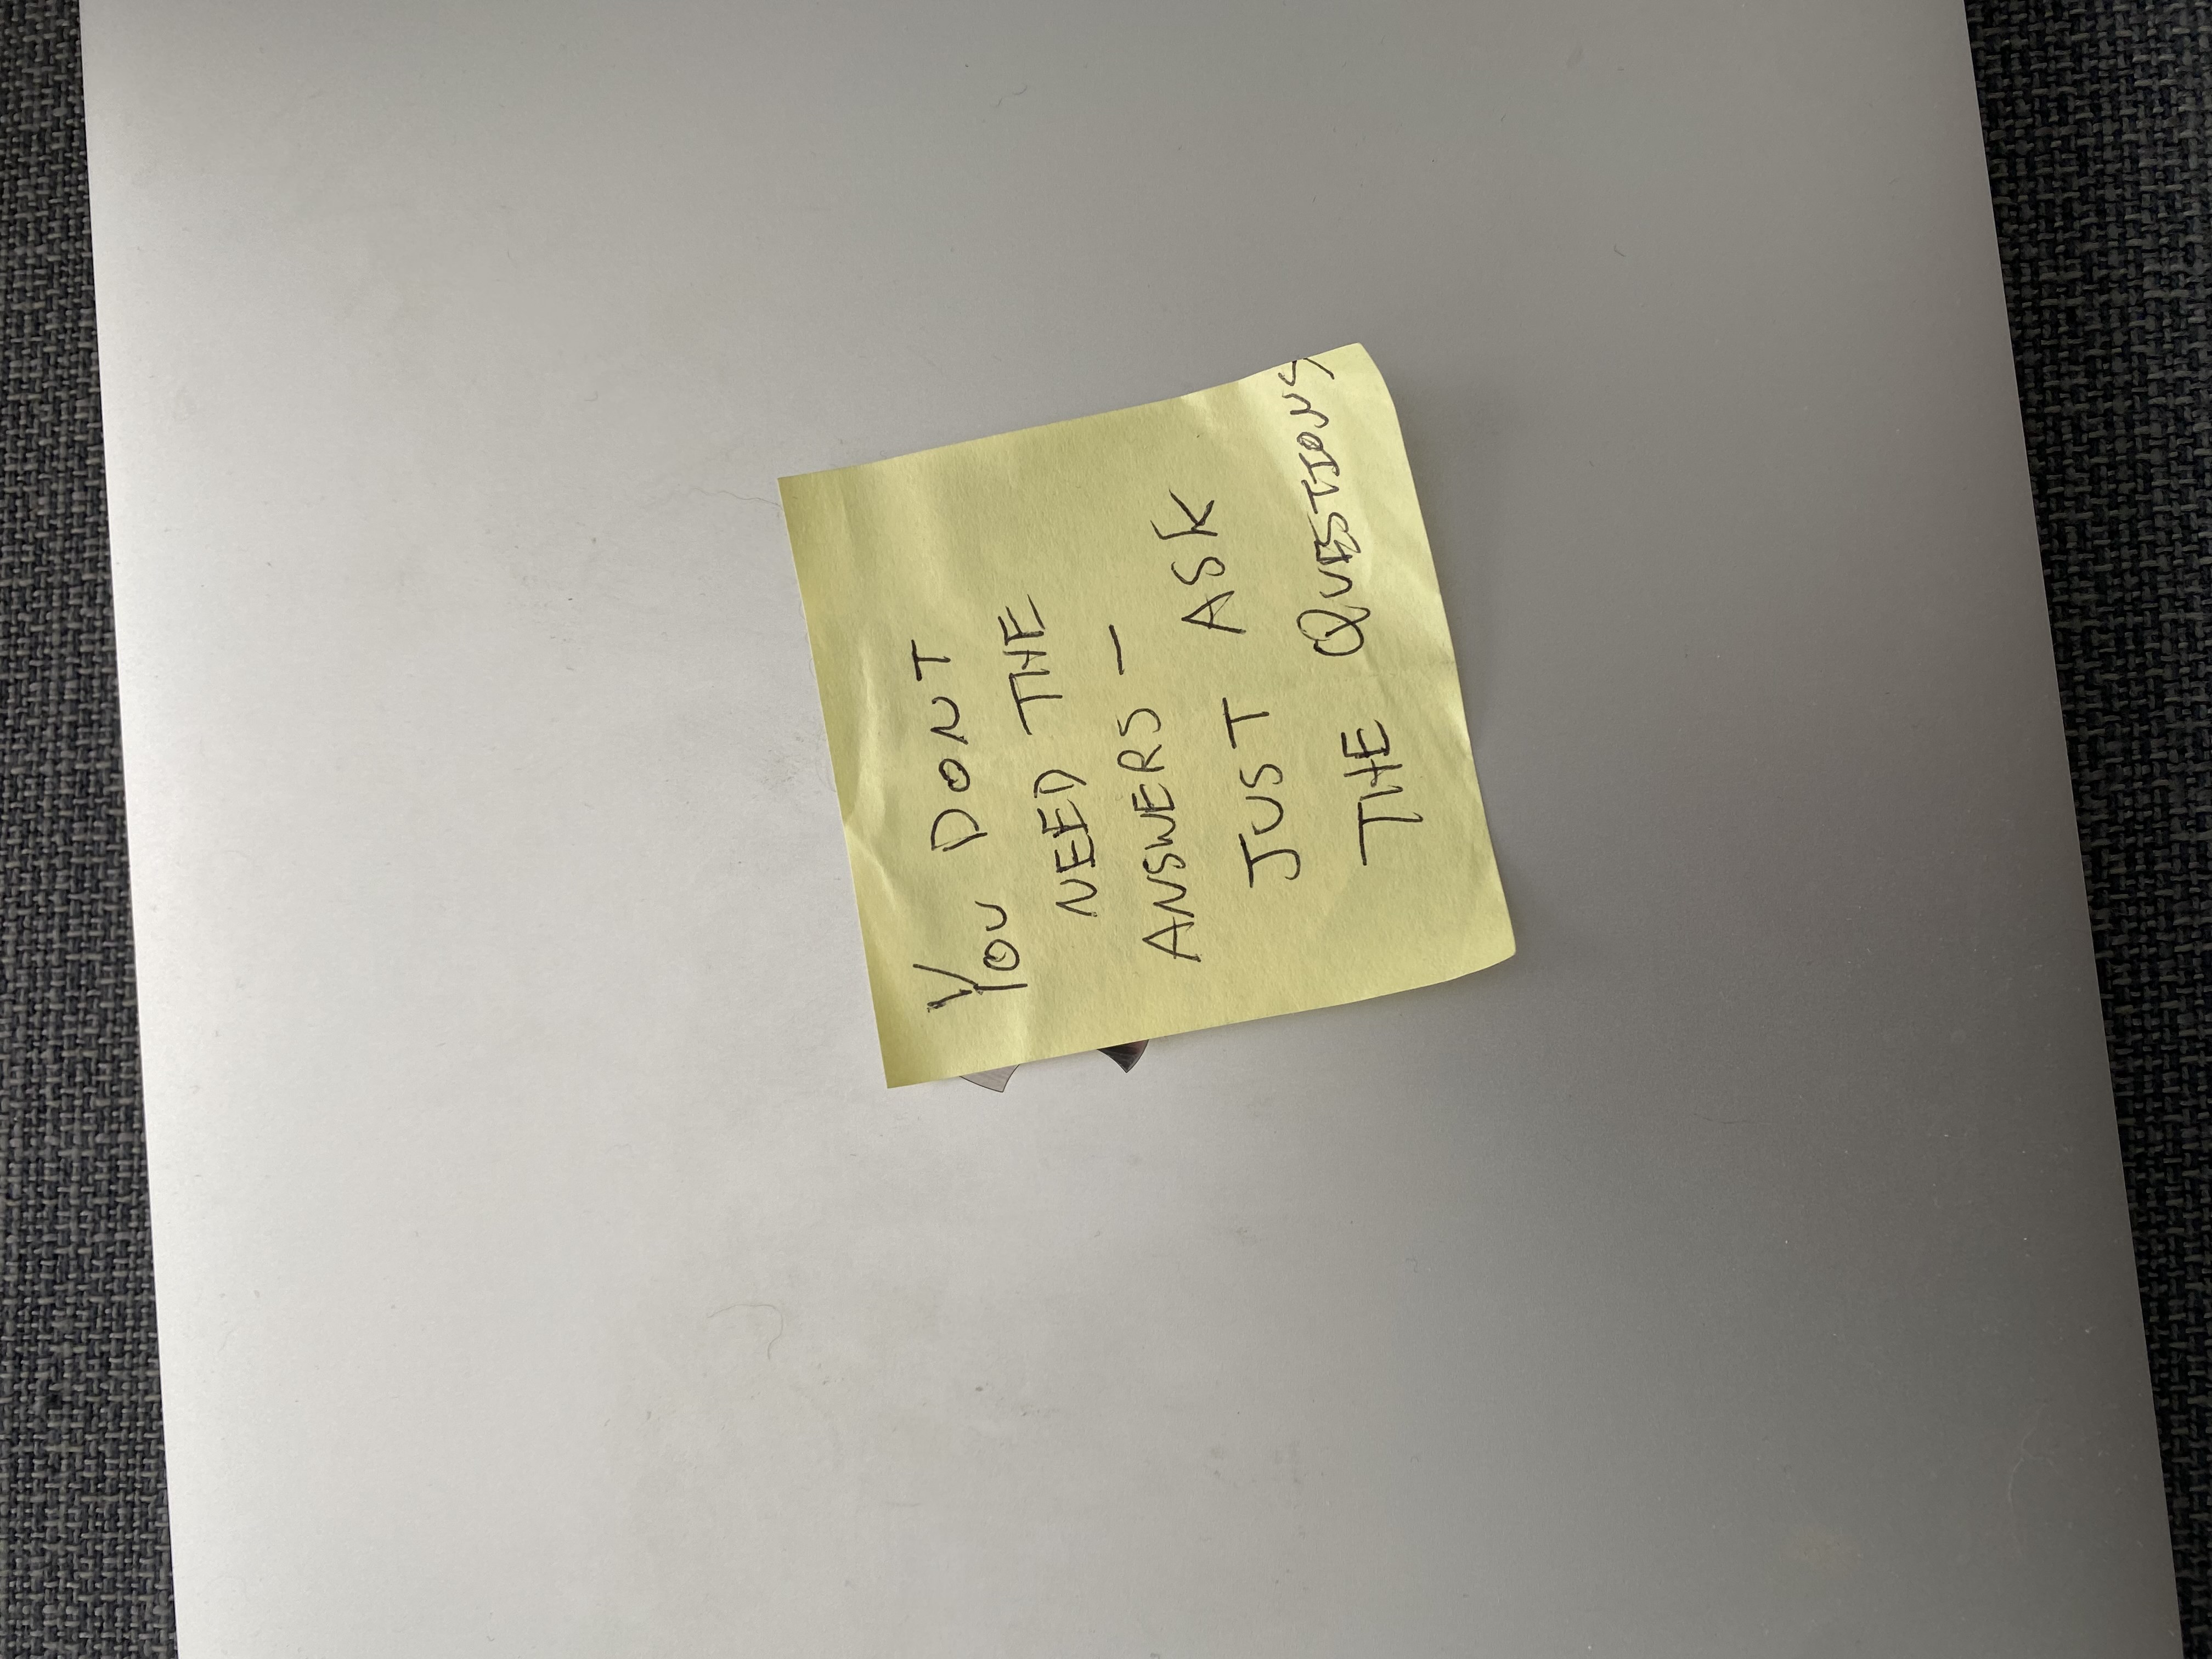 YOU DONT
NEED THE
ANSWERS —
JUST ASK
THE QUESTIONS